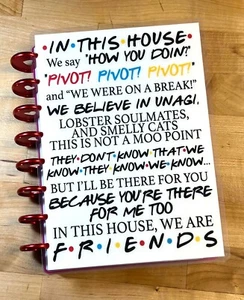 •IN•THIS•HOUSE•
We say "HOW YOU DOIN?"
"PIVOT! PIVOT! PIVOT!"
and "WE WERE ON A BREAK!"
WE BELIEVE IN UNAGI,
LOBSTER SOULMATES,
AND SMELLY CATS
THIS IS NOT A MOO POINT
THEY•DON'T•KNOW•THAT•WE
KNOW•THEY•KNOW•WE•KNOW...
BUT I'LL BE THERE FOR YOU
BECAUSE YOU'RE THERE
FOR ME TOO
IN THIS HOUSE, WE ARE
F•R•I•E•N•D•S